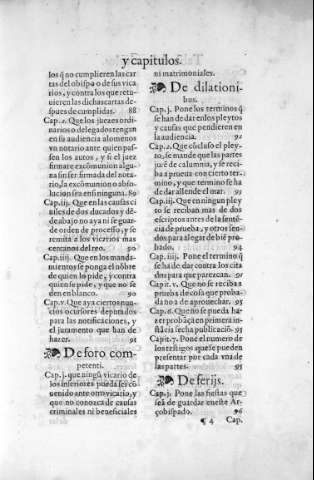 y capitulos.
los q̃ no cumplieren las car
tas del obispo o de sus vica
rios, y contra los que retu
uieren las dichas cartas des
pues de cumplidas. 88
Cap. 2. Que los juezes ordi
narios o delegados tengan
en su audiencia alomenos
vn notario ante quien pas-
sen los autos, y si el juez
firmare excõmunion algu-
na sin ser firmada del nota-
rio, la excõmunion o abso-
lucion sea en si ninguna. 89
Cap. iij. Que en las causas ci
uiles de dos ducados y dẽ
de abajo no aya ni se guar-
de orden de processo, y se
remita a los vicarios mas
cercanos del reo. 90
Cap. iiij. Que en los manda-
miento se ponga el nõbre
de quien lo pide, y contra
quien su pide, y que no se
den en blanco. 90
Cap. v. Que aya ciertos nun-
cios o cursores deputados
para las notificaciones, y
el juramento que han de
hazer. 91
De foro com
petenti.
Cap. j. que ningũ vicario de
los inferiores pueda ser cõ
uenido ante otro vicario, y
que no conozca de causas
criminales ni beneficiales
ni matrimoniales.
De dilationi
bus.
Cap. j. Pone los terminos q̃
se han de dar en los pleytos
y causas que pendieren en
la audiencia. 92
Cap. 2. Que cõcluso el pley-
no, se mande que las partes
jurẽ de calumnia, y se reci-
ba a prueua con cierto ter-
mino, y que termino se ha
de dar allende el mar. 93
Cap. iij. Que en ningun pley
to se reciban mas de dos
escriptos antes de la senten
cia de prueua, y otros sen-
dos para alegar de biẽ pro-
bado. 94
Cap. iiij. Pone el termino q̃
se ha de dar contra los cita
dos para que parezcan. 95
Cap. v. Que no se reciba a
prueua de cosa que proba-
da no a de aprouechar. 95
Cap. 6. Queño se pueda ha-
zer probãça en primera ins
tãcia fecha publicaciõ. 95
Capit. 7. Pone el numero de
los testigos que se pueden
presentar por cada vna de
las partes. 95
De ferijs.
Cap. j. Pone las fiestas que
se ã de guardar en este Ar-
çobispado. 96
¶ 4 Cap.